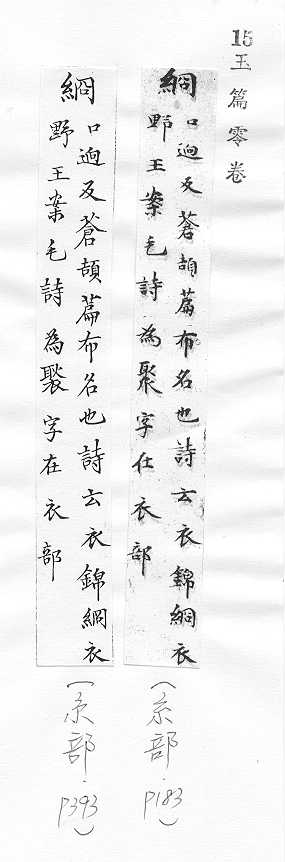 15玉篇零卷
絅
口迥反蒼頡篇布名也詩云衣錦絅衣
野王案毛詩為褧字在衣部
(糸部.P183)
絅
口迥反蒼頡篇布名也詩云衣錦絅衣
野王案毛詩為褧字在衣部
(糸部.P393)